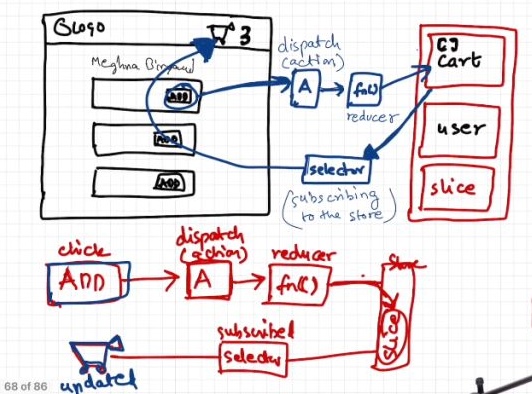 BLOGO
3
Meghna
ADD
ADD
ADD
dispatch
(action)
A
fn()
reducer
selector
(subscribing
to the store)
Cart
user
slice
click
ADD
dispatch
(action)
A
reducer
fn()
store
slice
subscribed
selector
updated
68 of 86